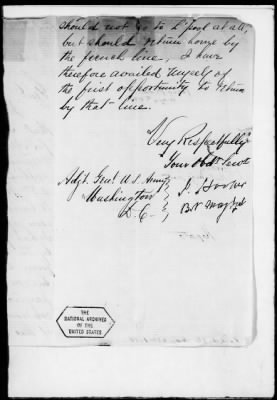 should not go to L'pool at all,
but should return home by
the french line, I have
therefore availed myself of
the first opportunity to return
by that line.
Very Respectfully
Your Obdt Servt
Adjt. Genl. U.S. Army J. Hooker
Washington Bt. Maj. Genl
D.C.
THE
NATIONAL ARCHIVES
OF THE
UNITED STATES